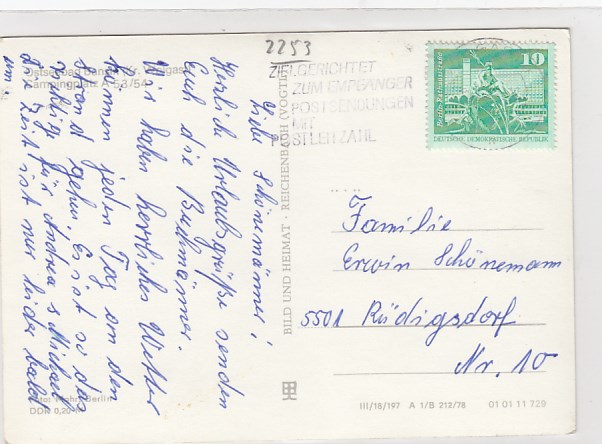 2253
Ostseebad Bansin (Kr. Wolgast)
Campingplatz A 53/54
ZIELGERICHTET
ZUM EMPFÄNGER
POSTSENDUNGEN
MIT
POSTLEITZAHL
10
Berlin, Rathausstraße
DEUTSCHE DEMOKRATISCHE REPUBLIK
Liebe Schönemänner!
Herzliche Urlaubsgrüße senden
Euch die Buhmänner.
Wir haben herrliches Wetter
können jeden Tag an den
Strand gehen. Es ist so das
richtige für Andrea & Michael
die Zeit ist nur leider bald
um
BILD UND HEIMAT · REICHENBACH (VOGTL)
Familie
Erwin Schönemann
5501 Rüdigsdorf
Nr. 10
Foto: Mohr, Berlin
DDR 0,20
III/18/197 A 1/B 212/78 01 01 11 729